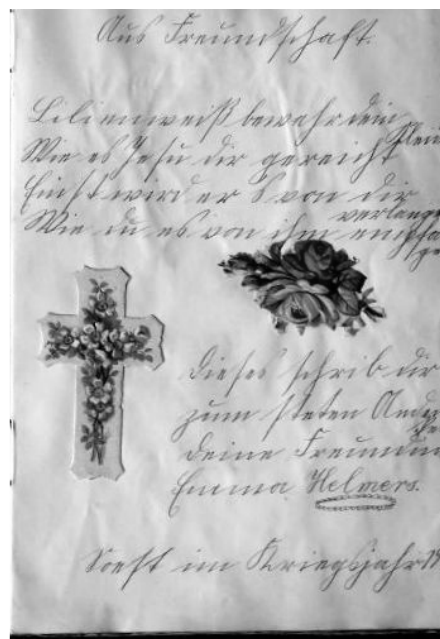 Aus Freundschaft.
Lilienweiß bewahr dein Klein
Wie es Jesu dir gereicht
Einst wird er es von dir
verlange
Wie du es von ihm empfa
ge
Dieses schrieb dir
zum steten Ande
ke
Deine Freundin
Emma Helmers.
Soest im Kriegsjahr 19